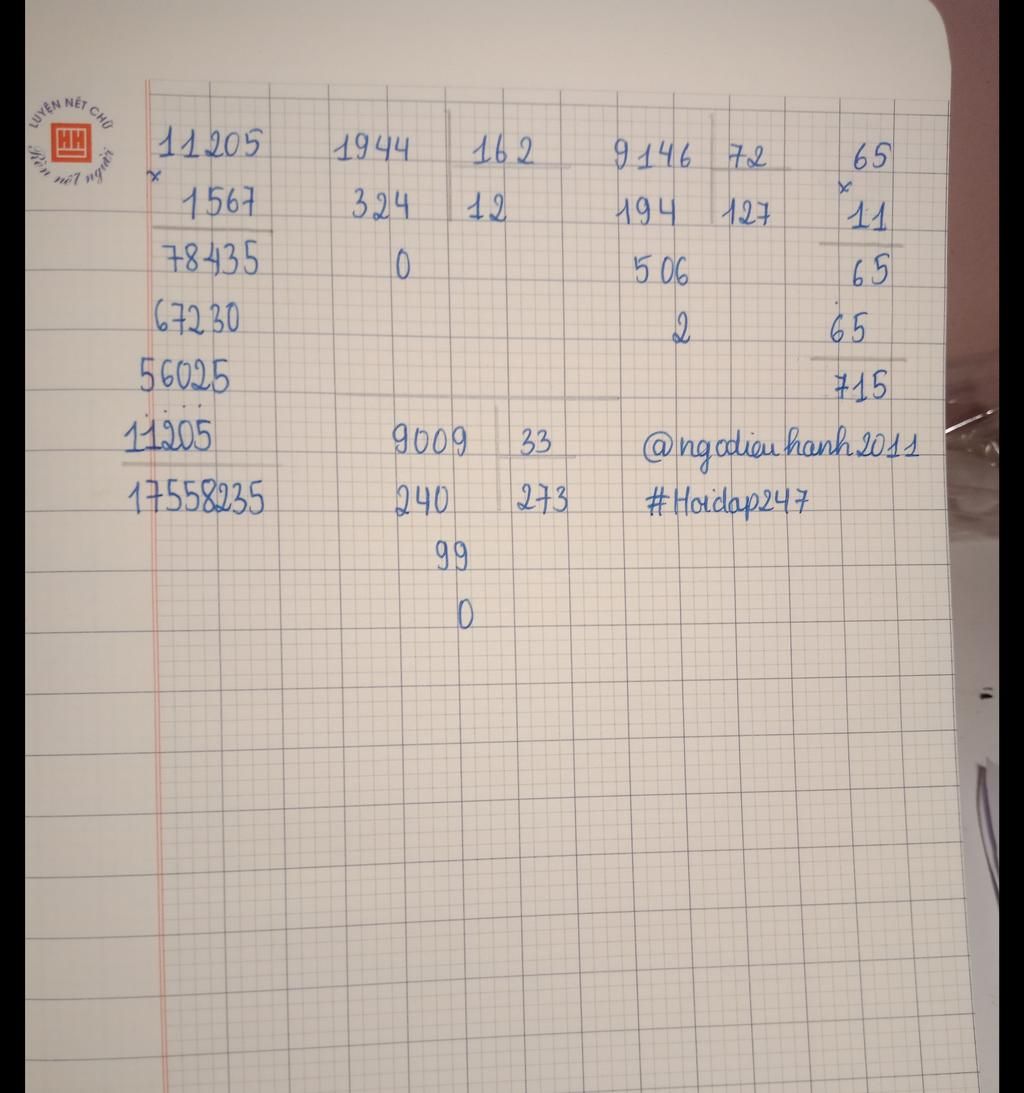 LUYỆN NÉT CHỮ
HH
Rèn nết người
11205 1944 162 9146 72 65
x 1567 324 12 194 127 x 11
78435 0 506 65
67230 2 65
56025 715
11205 9009 33 @ngodieuhanh2011
17558235 240 273 #Hoidap247
99
0